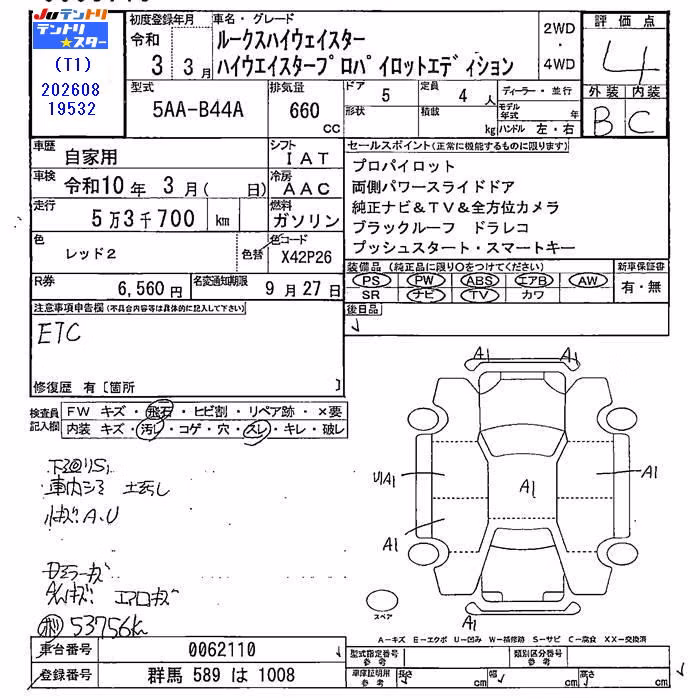 Juテントリ
テントリ
☆スター
(T1)
202608
19532
初度登録年月
令和
3 3月
車名・グレード
ルークスハイウェイスター
ハイウエイスタープロパイロットエディション
2WD
・
4WD
評価点
4
外装 内装
B C
型式
5AA-B44A
排気量
660
cc
ドア
5
定員
4 人
ディーラー・並行
形状
積載
kg
モデル年式 年
ハンドル 左・右
車歴
自家用
シフト
IAT
車検
令和10年 3月( 日)
冷房
AAC
走行
5万3千700 km
燃料
ガソリン
色
レッド2
色替
色コード
X42P26
R券
6,560円
名変通知期限
9月27日
セールスポイント(正常に機能するものに限ります)
プロパイロット
両側パワースライドドア
純正ナビ&TV&全方位カメラ
ブラックルーフ ドラレコ
プッシュスタート・スマートキー
装備品(純正品に限り○をつけてください)
PS PW ABS エアB AW
SR ナビ TV カワ
新車保証書
有・無
後日品
注意事項申告欄(不具合内容等は具体的に記入して下さい)
ETC
修復歴 有[箇所 ]
検査員
記入欄
FW キズ・飛石・ヒビ割・リペア跡・×要
内装 キズ・汚レ・コゲ・穴・スレ・キレ・破レ
車内シミ
小キズ A.U
エアロキズ
53756km
A1 A1
U1A1
A1
A1
A1
A1
スペア
A-キズ E-エクボ U-凹み W-補修跡 S-サビ C-腐食 XX-交換済
車台番号
0062110
登録番号
群馬 589 は 1008
型式指定番号
参考
類別区分番号
参考
車庫証明用
参考
長さ cm
幅 cm
高さ cm